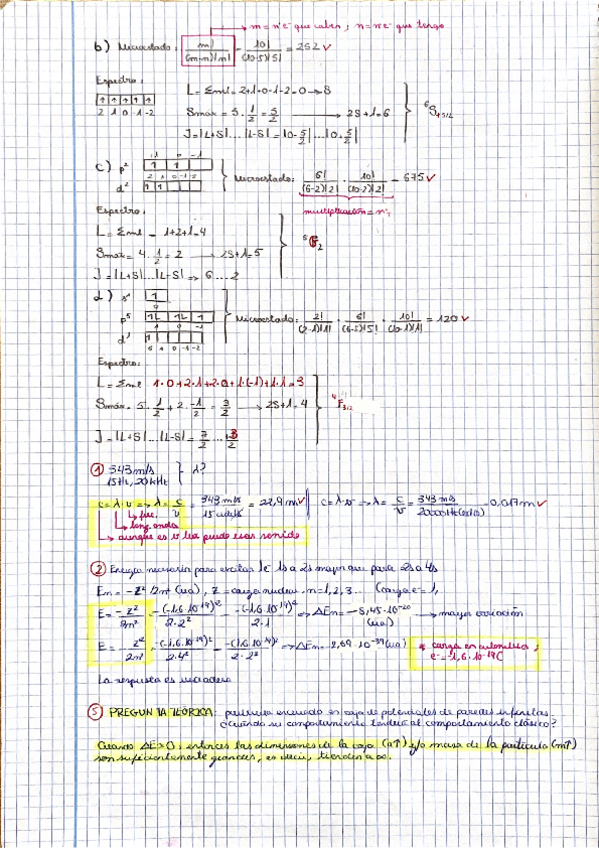 m = nº e⁻ que caben ; n = nº e⁻ que tengo
b) Microestado: m!/(m-n)!n! = 10!/(10-5)!5! = 252 ✓
Espectro:
↑ ↑ ↑ ↑ ↑
2 1 0 -1 -2
L = Σml = 2+1+0-1-2 = 0 → S
Smax = 5 · 1/2 = 5/2 → 2S+1 = 6
J = |L+S| ... |L-S| = |0-5/2| ... |0+5/2|
c) p²
1 0 -1
d²
2 1 0 -1 -2
Microestado: 6!/(6-2)!2! · 10!/(10-2)!2! = 675 ✓
Espectro:
L = Σml = 1+2+1 = 4
Smax = 4 · 1/2 = 2 → 2S+1 = 5
J = |L+S| ... |L-S| ⇒ 6 ... 2
d) s¹
0
p⁵
1 0 -1
d¹
Microestado: 2!/(2-1)!1! · 6!/(6-5)!5! · 10!/(10-1)!1! = 120 ✓
Espectro:
L = Σml 1·0+2·1+2·0+1·(-1)+1·2 = 3
Smáx = 5 · 1/2 + 2 · -1/2 = 3/2 → 2S+1 = 4
⁴F₃/₂
J = |L+S| ... |L-S| =
① 343 m/s
15 Hz, 20 kHz
λ?
c = λ·ν ⇒ λ = c/ν = 343 m/s / 15 = 22,9 m ✓
c = λ·ν ⇒ λ = c/ν = 343 m/s / = 0,017 m ✓
↳ frec.
↳ long. onda
↳ aunque es v luz puedo usar sonido
② Energía necesaria para excitar 1e⁻ 1s a 2s mayor que para 2s a 4s
En = -Z²/2n² (ua), Z = carga nuclear, n = 1, 2, 3... (carga e⁻ = 1,
E = -Z²/2n² = -(-1,6·10⁻¹⁹)²/2·2² - -(-1,6·10⁻¹⁹)²/2·1 ⇒ ΔEn = (ua) → mayor variación
E = -Z²/2n² = -(-1,6·10⁻¹⁹)²/2·4² - -(-1,6·10⁻¹⁹)²/2·2² ⇒ ΔEn = 2,69·10⁻³⁹ (ua)
* carga en ;
e⁻ = -1,6·10⁻¹⁹ C
La respuesta es verdadera
⑤ PREGUNTA TEÓRICA: partícula encerrada en caja de potenciales de paredes infinitas
¿cuándo su comportamiento tenderá al comportamiento clásico?
Cuando ΔE→0; entonces las dimensiones de la caja (a↑) y/o masa de la partícula (m↑)
son suficientemente grandes, es decir, tienden a ∞.